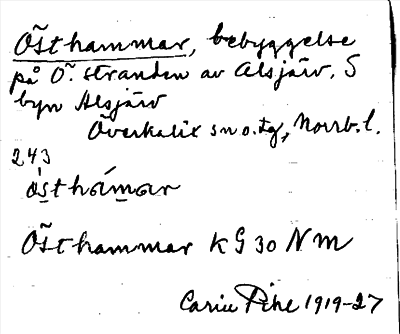 Östhammar, bebyggelse
på Ö. stranden av Alsjärv, S
byn Alsjärv
Överkalix sn o. tg, Norrb. l.
243
östhamar
Östhammar KG 30 NM
Carin Pihl 1919-27